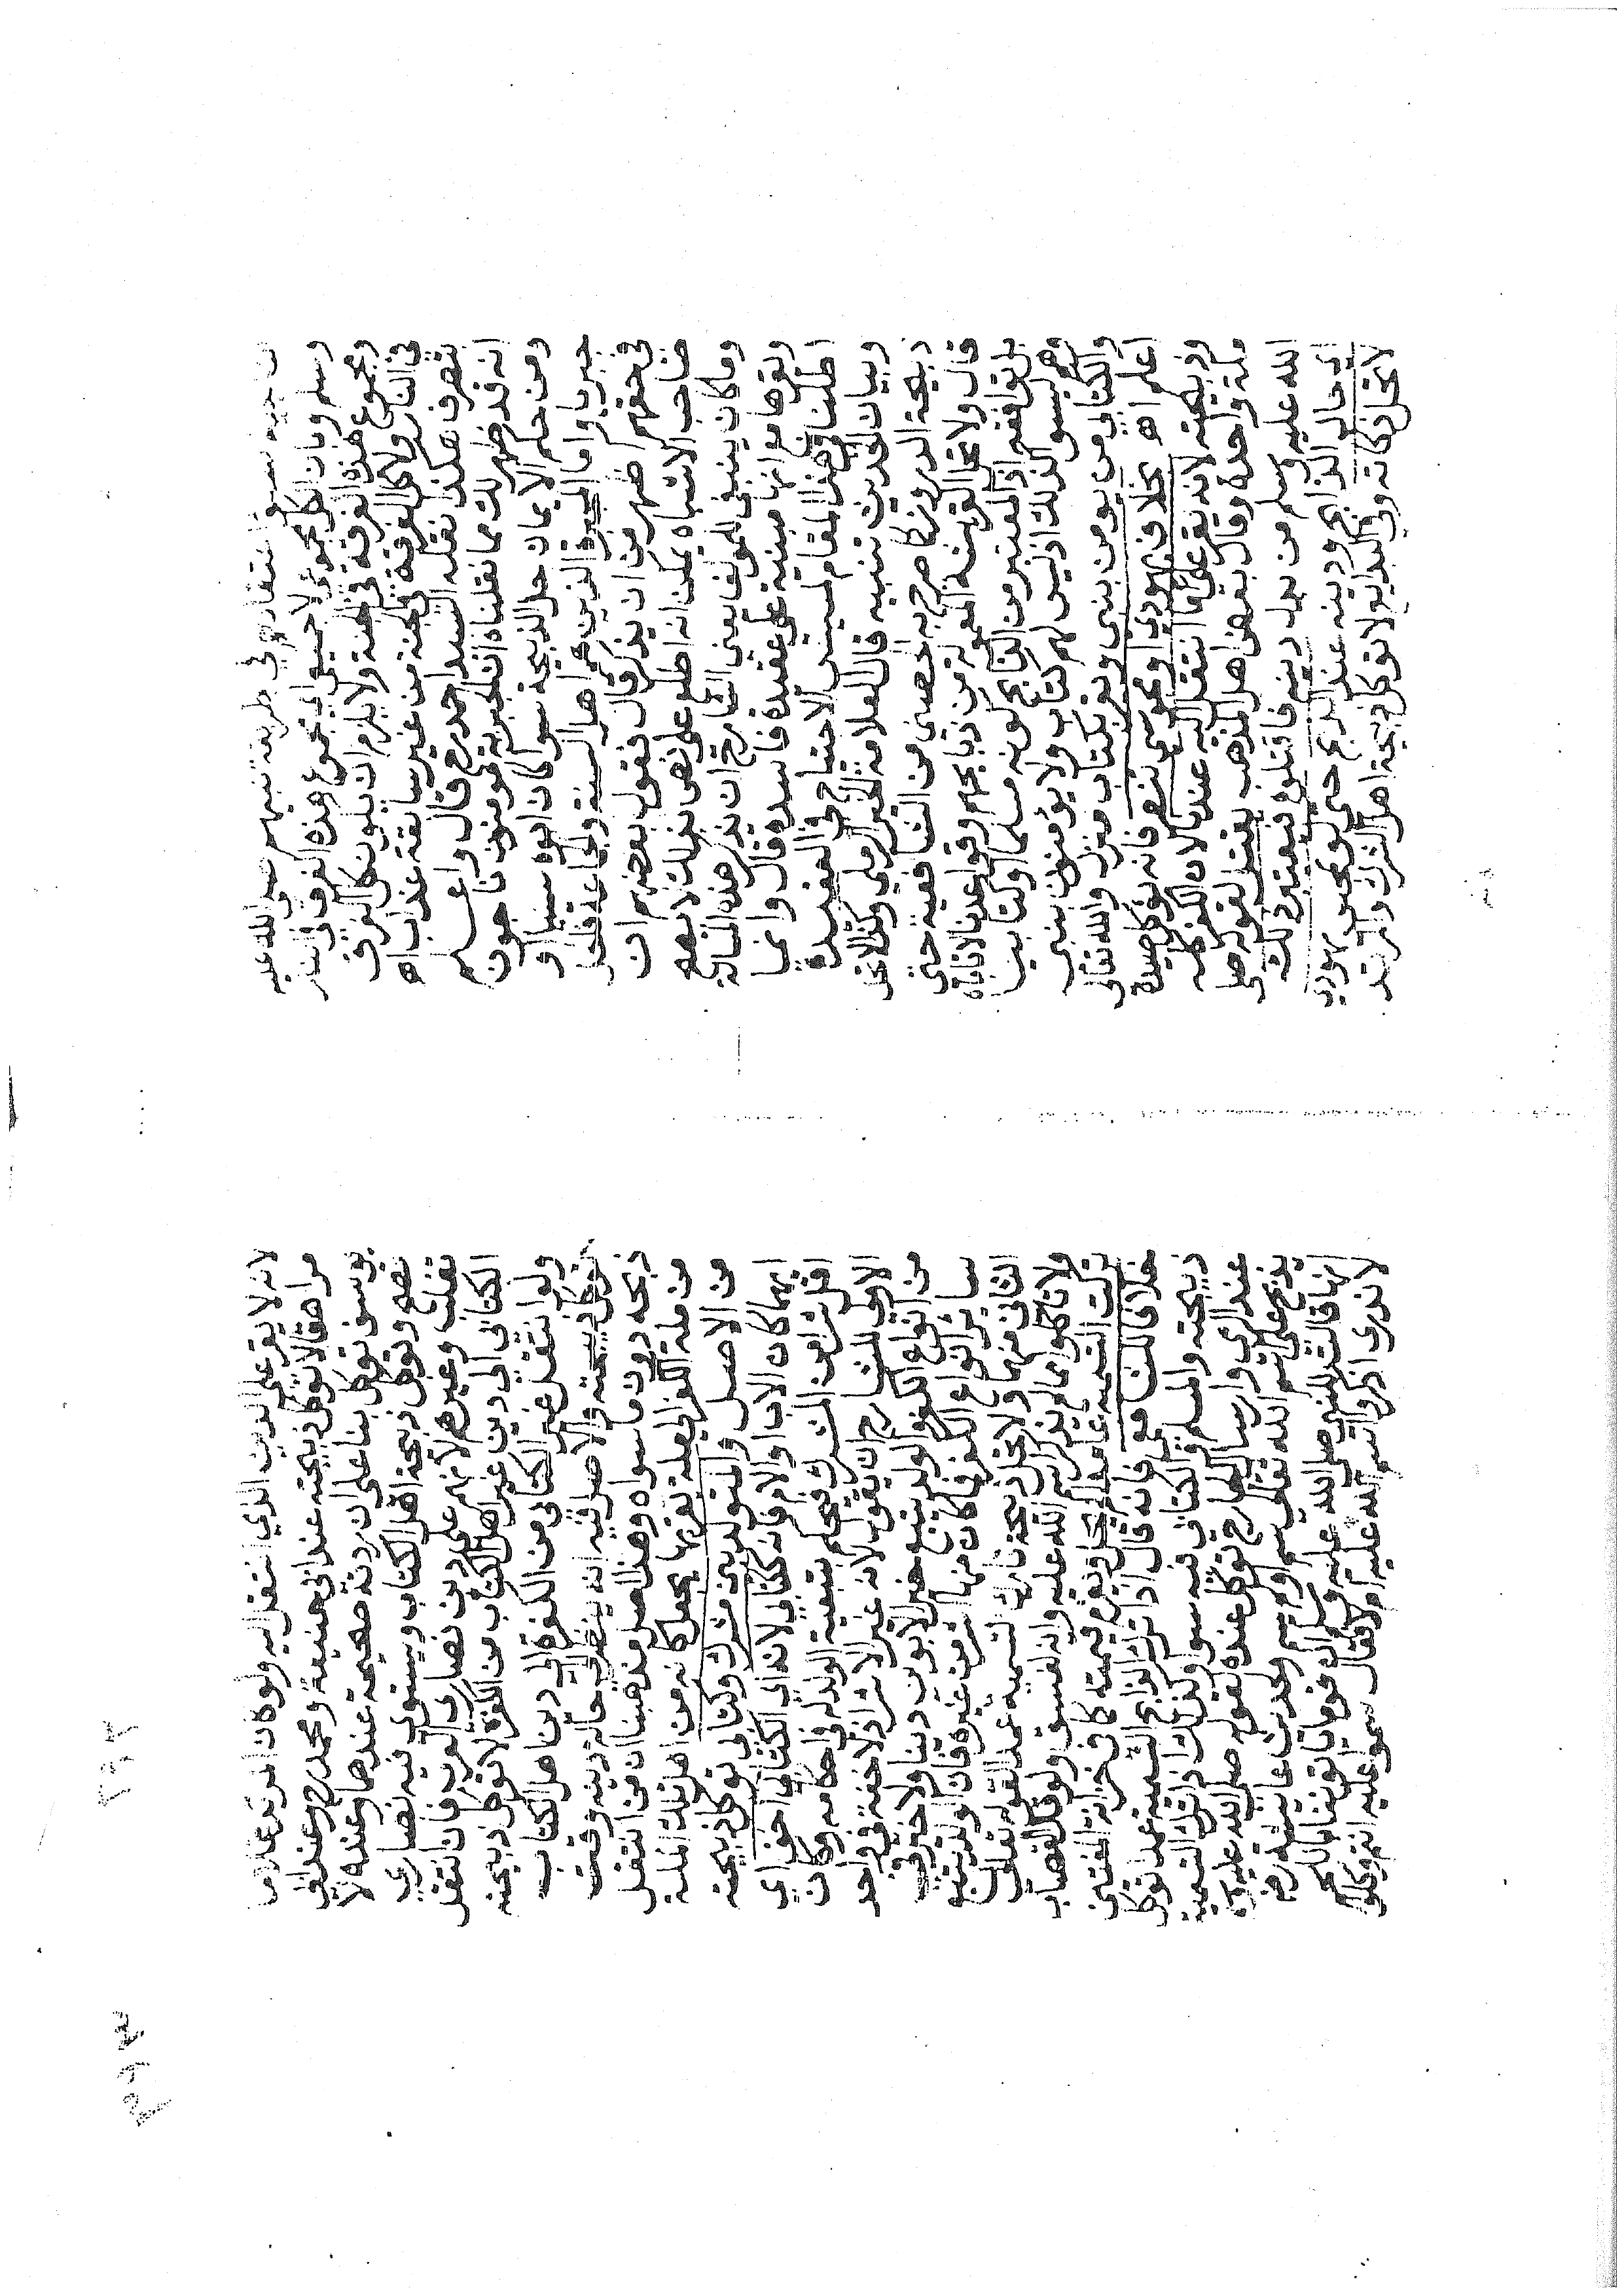 وسلم وبان الكل مجموعي لا جميعي اي مجموع هذه الفرق في النار
ومجموع هذه الفرقة في الجنة ولا يلزم ان يكون كل الفرق
في النار ولا كل الفرقة في الجنة من غير سابقة عذاب اه
بتصرف هكذا نقله السيد احمد رح قال واعلم
انه قد ظهر لك مما نقلناه ان الجبرية مومنون ناجون
ومن حكم الايمان حل الذبيحة سوا كان ابوه سنيا او
جبريا واما المجبرة الذين هم اهل السنة والجماعة فالحل
في حقهم اظهر من ان يذكر قال فقول بعضهم ان
صاحب الاشباه يمكن انه اطلع على نص بذلك لا يصح
وما كان ينبغي للمولف يعني الشارح ان يذكر هذه المسالة
ويقرها مع انها مبنية على عقيدة فاسدة قال وانما
اطلنا في هذا المقام لمسيس الاحتياج في العقيدة
وبيان الحديث تنبيه قال العلامة الخير الرملي وكذا لا تحل
ذبيحة الدروز كما صرح به الحصني من الشافعية حتى
قال ولا تحل القريشة المعمولة من ذبايحهم وقواعدنا لا تاباه
بل توافقه اذ المعتبر من الذابح كونه مسلما او كتابيا
وهم ليسوا كذلك اذ ليس لهم كتاب ولا يؤمنون بنبي
والكتابي من يومن بنبي ويقر بكتاب منزل والله تعالى
اعلم اه بخلاف يهودي او مجوسي تنصر فانه توكل صيده
وذبيحته لانه يقر على ما انتقل اليه عندنا لان الكفر كله
ملة واحدة وقال بعض اهل المذهب يقتل لقوله صلى
الله عليه وسلم من بدل دينه فاقتلوه فيعتبر ذلك
اي حال الذابح ودينه عند الذبح حتى لو تمجس يهودي
لا تحل ذكاته وفي البدايع ولا توكل ذبيحة اهل الشرك والمرتد
لانه لا يقر على الدين الذي انتقل اليه ولو كان المرتد غلاما
مراهقا لا توكل ذبيحته عند ابي حنيفة ومحمد رح وعند ابي
يوسف توكل بنا على ان ردته صحيحة عندهما وعنده لا
تصح وتوكل ذبيحة اهل الكتاب ويستوي فيه نصارى
تغلب وغيرهم لانهم على دين نصارى العرب فان انتقل
الكتابي الى دين غير اهل الكتاب من الكفرة لا توكل ذبيحته
ولو انتقل غير الكتابي من الكفرة الى دين اهل الكتاب
توكل ذبيحته والاصل فيه انه ينظر الى حاله ودينه وقت
ذبحه دون ما سواه وهذا اصل مذهبنا ان من انتقل
من ملة الكفر الى ملة يقر بها يجعل كانه من اهل تلك الملة
من الاصل والمتولد بين مشرك وكتابي توكل ذبيحته
ايهما كان الاب او الام فانه كتابي لانه اي الكتابي اخف اي
اقل شرا من المشرك فيحكم بتبعية الولد له في احكامه وكان
الاولى للشارح ان يقول لانه غير الاشر اذ لا خفة في واحد
من انواع الكفر والولد يتبع خير الابوين دينا ولا خير في
ساير انواع الكفر فما كان منها اشر من غيره فان الولد يتبع
الثاني منهما ولا تحل ذبيحة تارك تسمية عمدا لقوله تعالى
ولا تاكلوا مما لم يذكر اسم الله عليه وانه لفسق ولو كان القصاب
ترك التسمية عامدا لم يحل ويغرم قيمته كما في خزانة المفتين
خلافا للشافعي فانه قال اذا ترك الذابح التسمية عمدا توكل
ذبيحته والمسلم والكتابي فيه سوا وكذلك اذا ترك التسمية
عند الرمي وارسال الجارح توكل عنده لقوله صلى الله عليه وسلم
يذبح على اسم الله تعالى سمى او لم يسم وحديث عايشة رض
انها قالت للنبي صلى الله عليه وسلم ان قوما ياتوننا باللحم
لا ندري اذكروا اسم الله عليه ام لا فقال سموا عليه انتم وكلوا